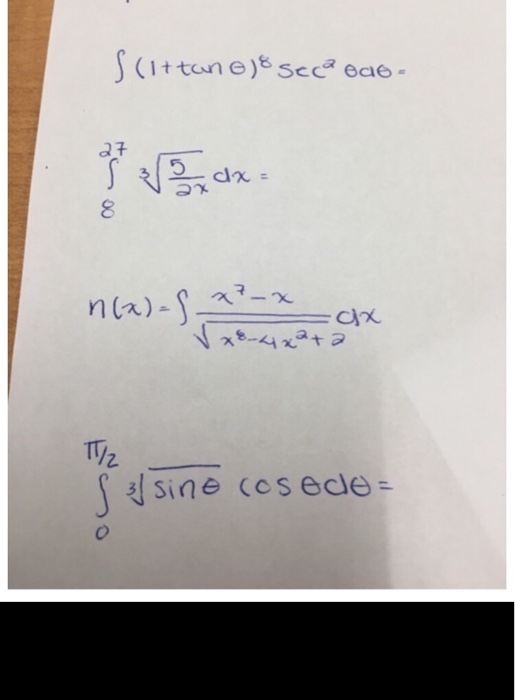 ∫(1+tanθ)⁸ sec²θdθ=
²⁷∫₈ ³√(5/2x) dx =
n(x)=∫ (x⁷-x)/√(x⁸-4x²+2) dx
^(π/2)∫₀ ³√sinθ cosθdθ=